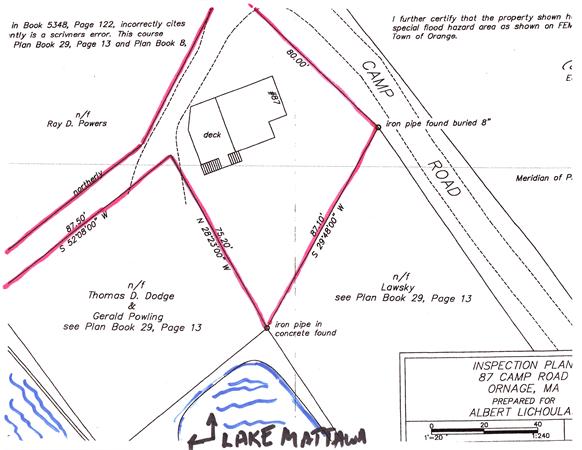 in Book 5348, Page 122, incorrectly cites
ntly is a scrivners error. This course
Plan Book 29, Page 13 and Plan Book 8,
I further certify that the property shown h
special flood hazard area as shown on FEM
Town of Orange.
80.00'
CAMP
ROAD
#87
deck
iron pipe found buried 8"
n/f
Ray D. Powers
northerly
Meridian of P
87.50'
S 52°08'00" W
75.20'
N 28°23'00" W
87.10'
S 29°48'00" W
n/f
Thomas D. Dodge
&
Gerald Powling
see Plan Book 29, Page 13
n/f
Lawsky
see Plan Book 29, Page 13
iron pipe in
concrete found
INSPECTION PLAN
87 CAMP ROAD
ORNAGE, MA
PREPARED FOR
ALBERT LICHOULA
0 40
1"=20' 1:240
LAKE MATTAWA